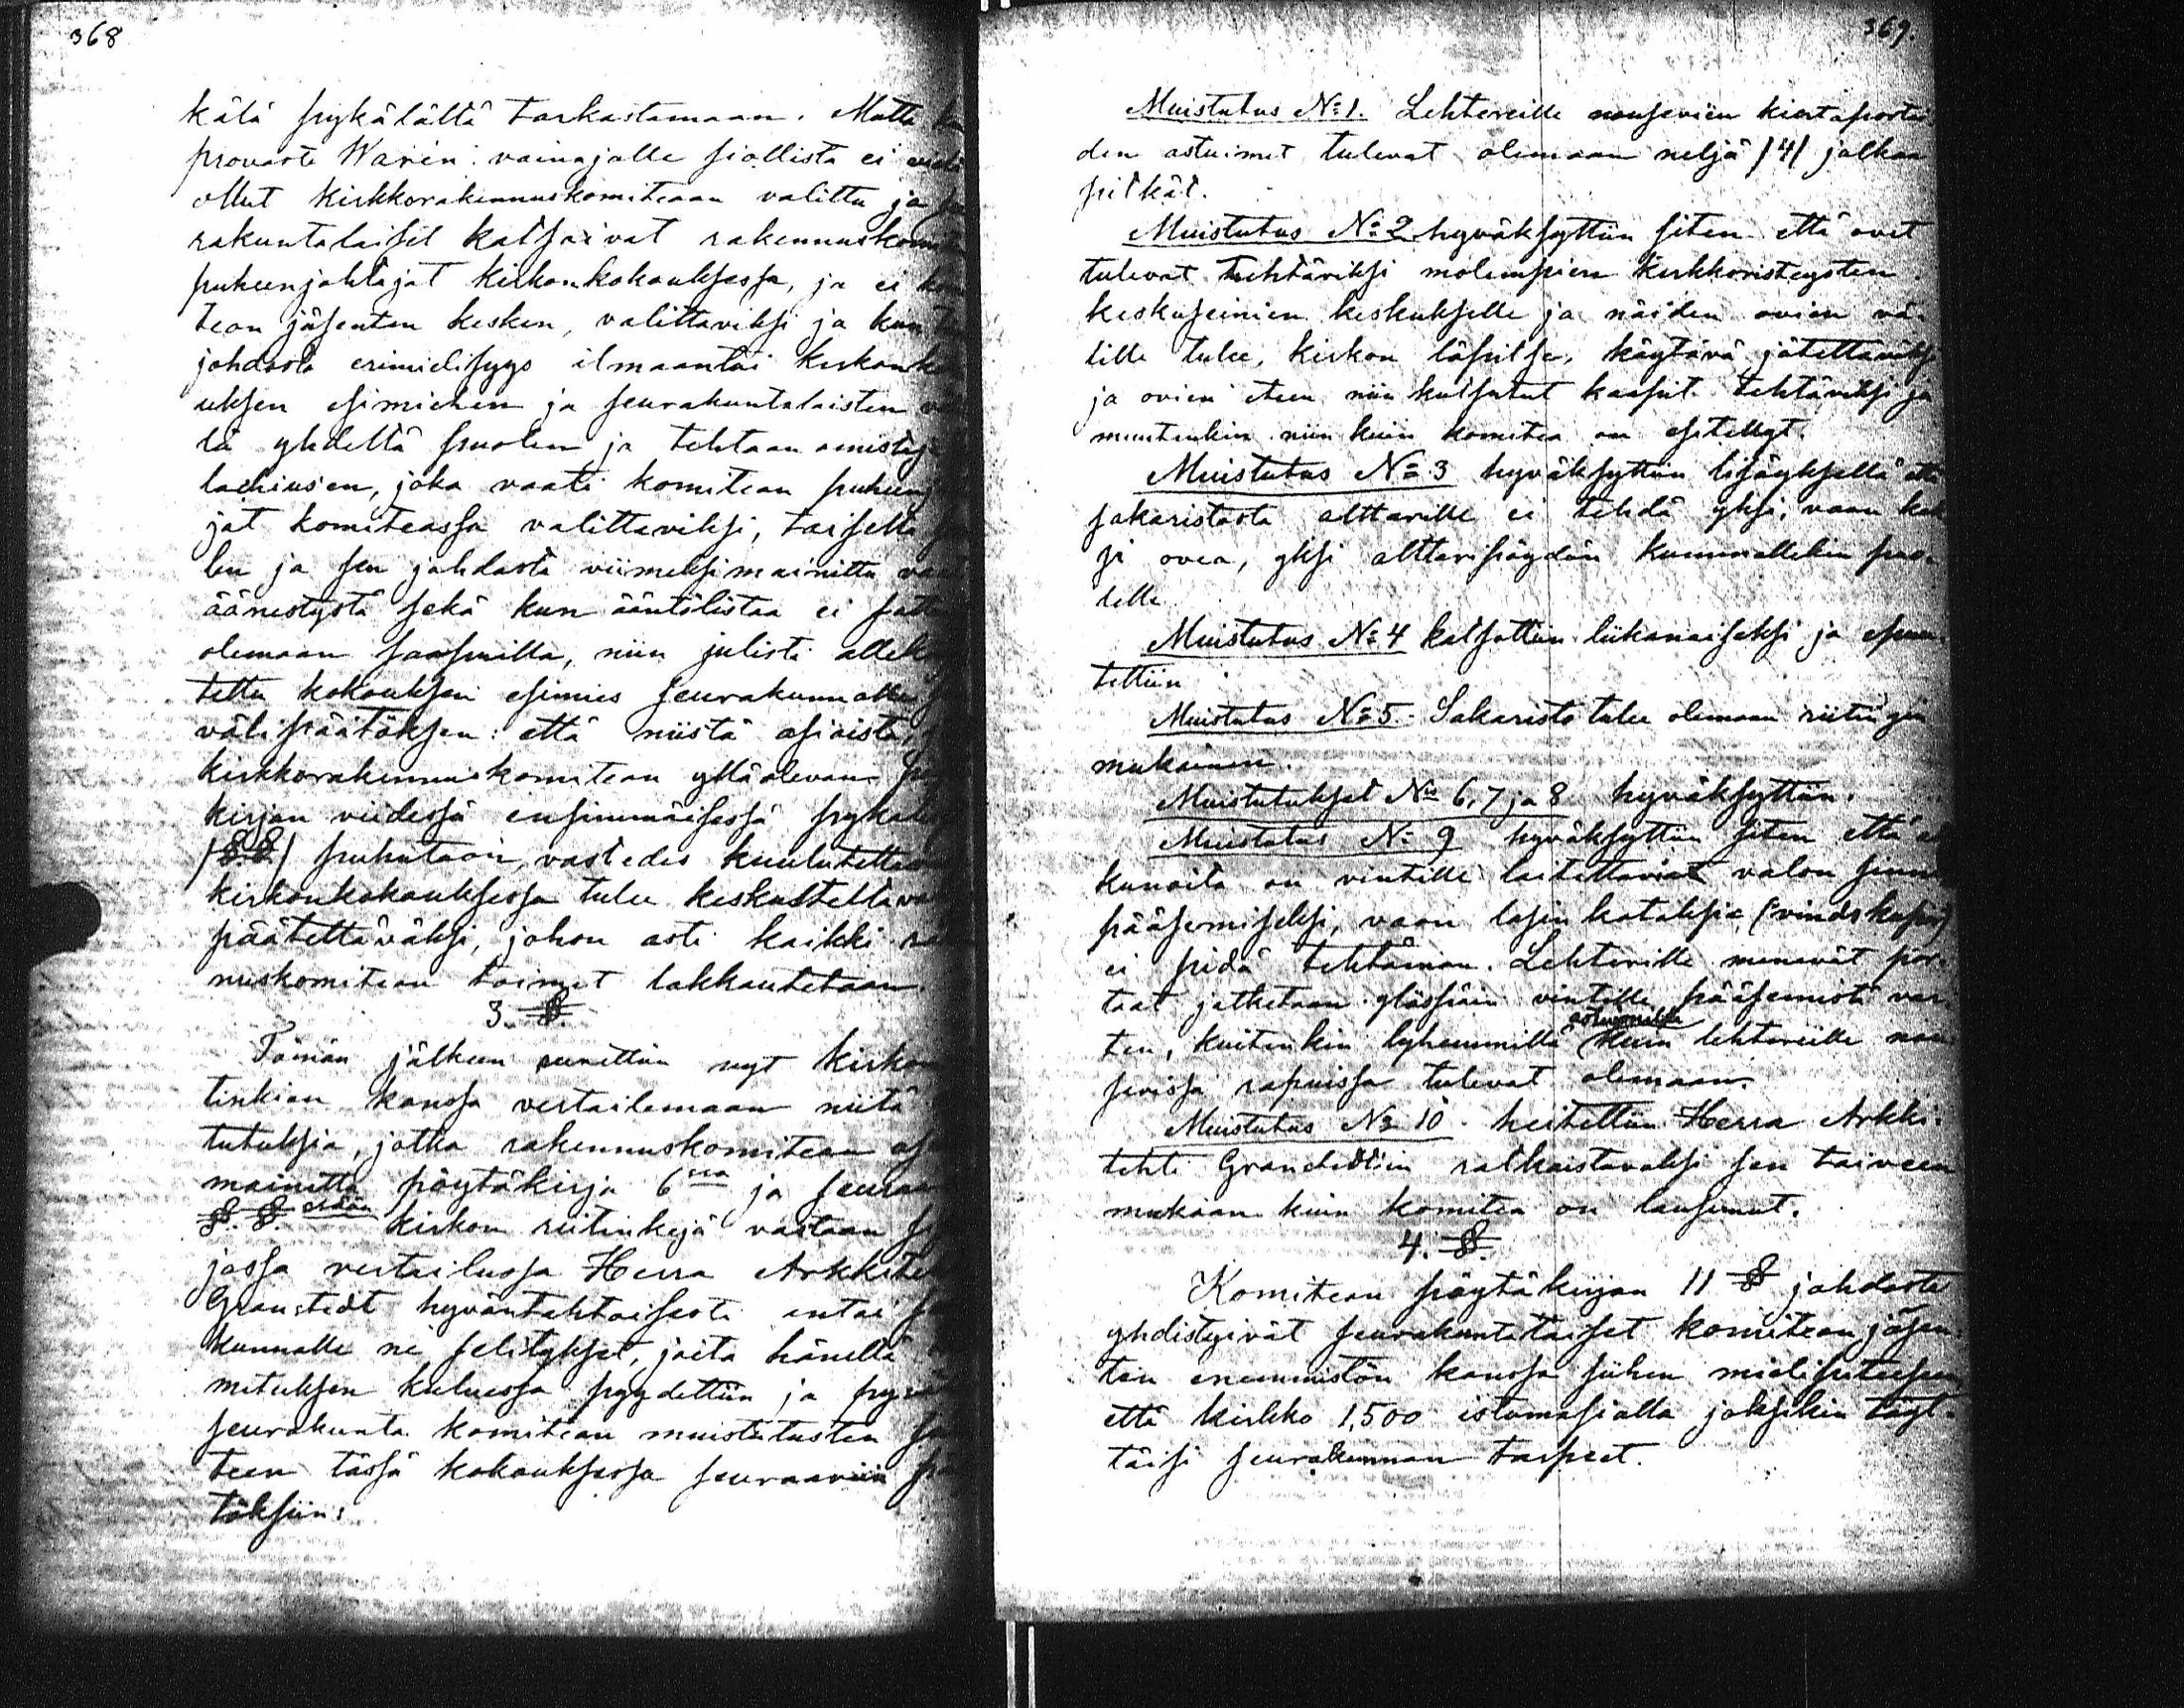 368
kälä pykälältä tarkastamaan. Mutta
provasti Warén vainajalle siallista ei
ollut kirkkorakennuskomiteaan valittu ja
rakuntalaiset katsoivat rakennuskomi
puheenjohtajat kirkonkokouksessa, ja ei
tean jäsenten kesken, valittaviksi ja kun
johdosta erimielisyys ilmaantui kirkonko
uksen esimiehen ja seurakuntalaisten
lä yhdeltä puolen ja tehtaan omistaja
lachius'en, joka vaati komitean puheenj
jat komiteassa valittaviksi, toiselta
len ja sen johdosta viimeksimainittu
äänestystä sekä kun ääntölistaa ei
olemaan saapuilla, niin julisti alleki
tettu kokouksen esimies seurakunnalle
välipäätöksen: että niistä asioista,
kirkkorakennuskomitean ylläolevan
kirjan viidessä ensimmäisessä pykälä
/§.§/ puhutaan, vastedes kuulutettava
kirkonkokouksessa tulee keskusteltava
päätettäväksi, johon asti kaikki
nuskomitean toimet lakkautetaan.
3. §.
Tämän jälkeen ruvettiin nyt kirkon
tinkien kanssa vertailemaan niitä
tutuksia, jotka rakennuskomitean
mainittu pöytäkirja 6:ssa ja seuraa
§.§. kirkon riitinkejä vastaan
jossa vertailussa Herra Arkkite
Granstedt hyväntahtoisesti antoi
kunnalle ne selitykset, joita häneltä
mituksen kuluessa pyydettiin ja
seurakunta komitean muistutusten
teen tässä kokouksessa seuraaviin
töksiin:
369.
Muistutus No 1. Lehtereille nousevien kiertaportei
den astuimet tulevat olemaan neljä /4/ jalkaa
pitkät.
Muistutus No 2 hyväksyttiin siten että ovet
tulevat tehtäviksi molempien kirkkoristeysten
keskuseinien keskukselle ja näiden ovien vä-
lille tulee, kirkon läpitse, käytävä jätettäväksi
ja ovien eteen niin kutsutut kaapit tehtäviksi ja
muutenkin niin kuin komitea on esitellyt.
Muistutus No 3 hyväksyttiin lisäyksellä että
sakaristosta alttarille ei tehdä yksi, vaan kak
si ovea, yksi alttaripöydän kummallekin puo-
lelle.
Muistutus No 4 katsottiin liikanaiseksi ja epuu-
tettiin
Muistutus No 5. Sakaristo tulee olemaan riitingin
mukainen.
Muistutukset No 6, 7 ja 8 hyväksyttiin.
Muistutus No 9 hyväksyttiin siten että
kunoita on vintille laitettavat valon sinne
pääsemiseksi, vaan lasin kataksia (vindskupor)
ei pidä tehtämän. Lehterille menevät por-
taat jatketaan ylöspäin vintille pääsemistä var-
ten, kuitenkin lyhemmillä astuimilla kuin lehtereille nou-
sevissa rapuissa tulevat olemaan.
Muistutus No 10. heitettiin Herra Arkki-
tehti Granstedt'in ratkaistavaksi sen toiveen
mukaan kuin komitea on lausunut.
4. §.
Komitean pöytäkirjan 11 § johdosta
yhdistyivät seurakuntalaiset komitean jäsen-
ten enemmistön kanssa siihen mielipiteeseen
että kirkko 1,500 istumasialla joksikin täyt-
täisi seurakunnan tarpeet.